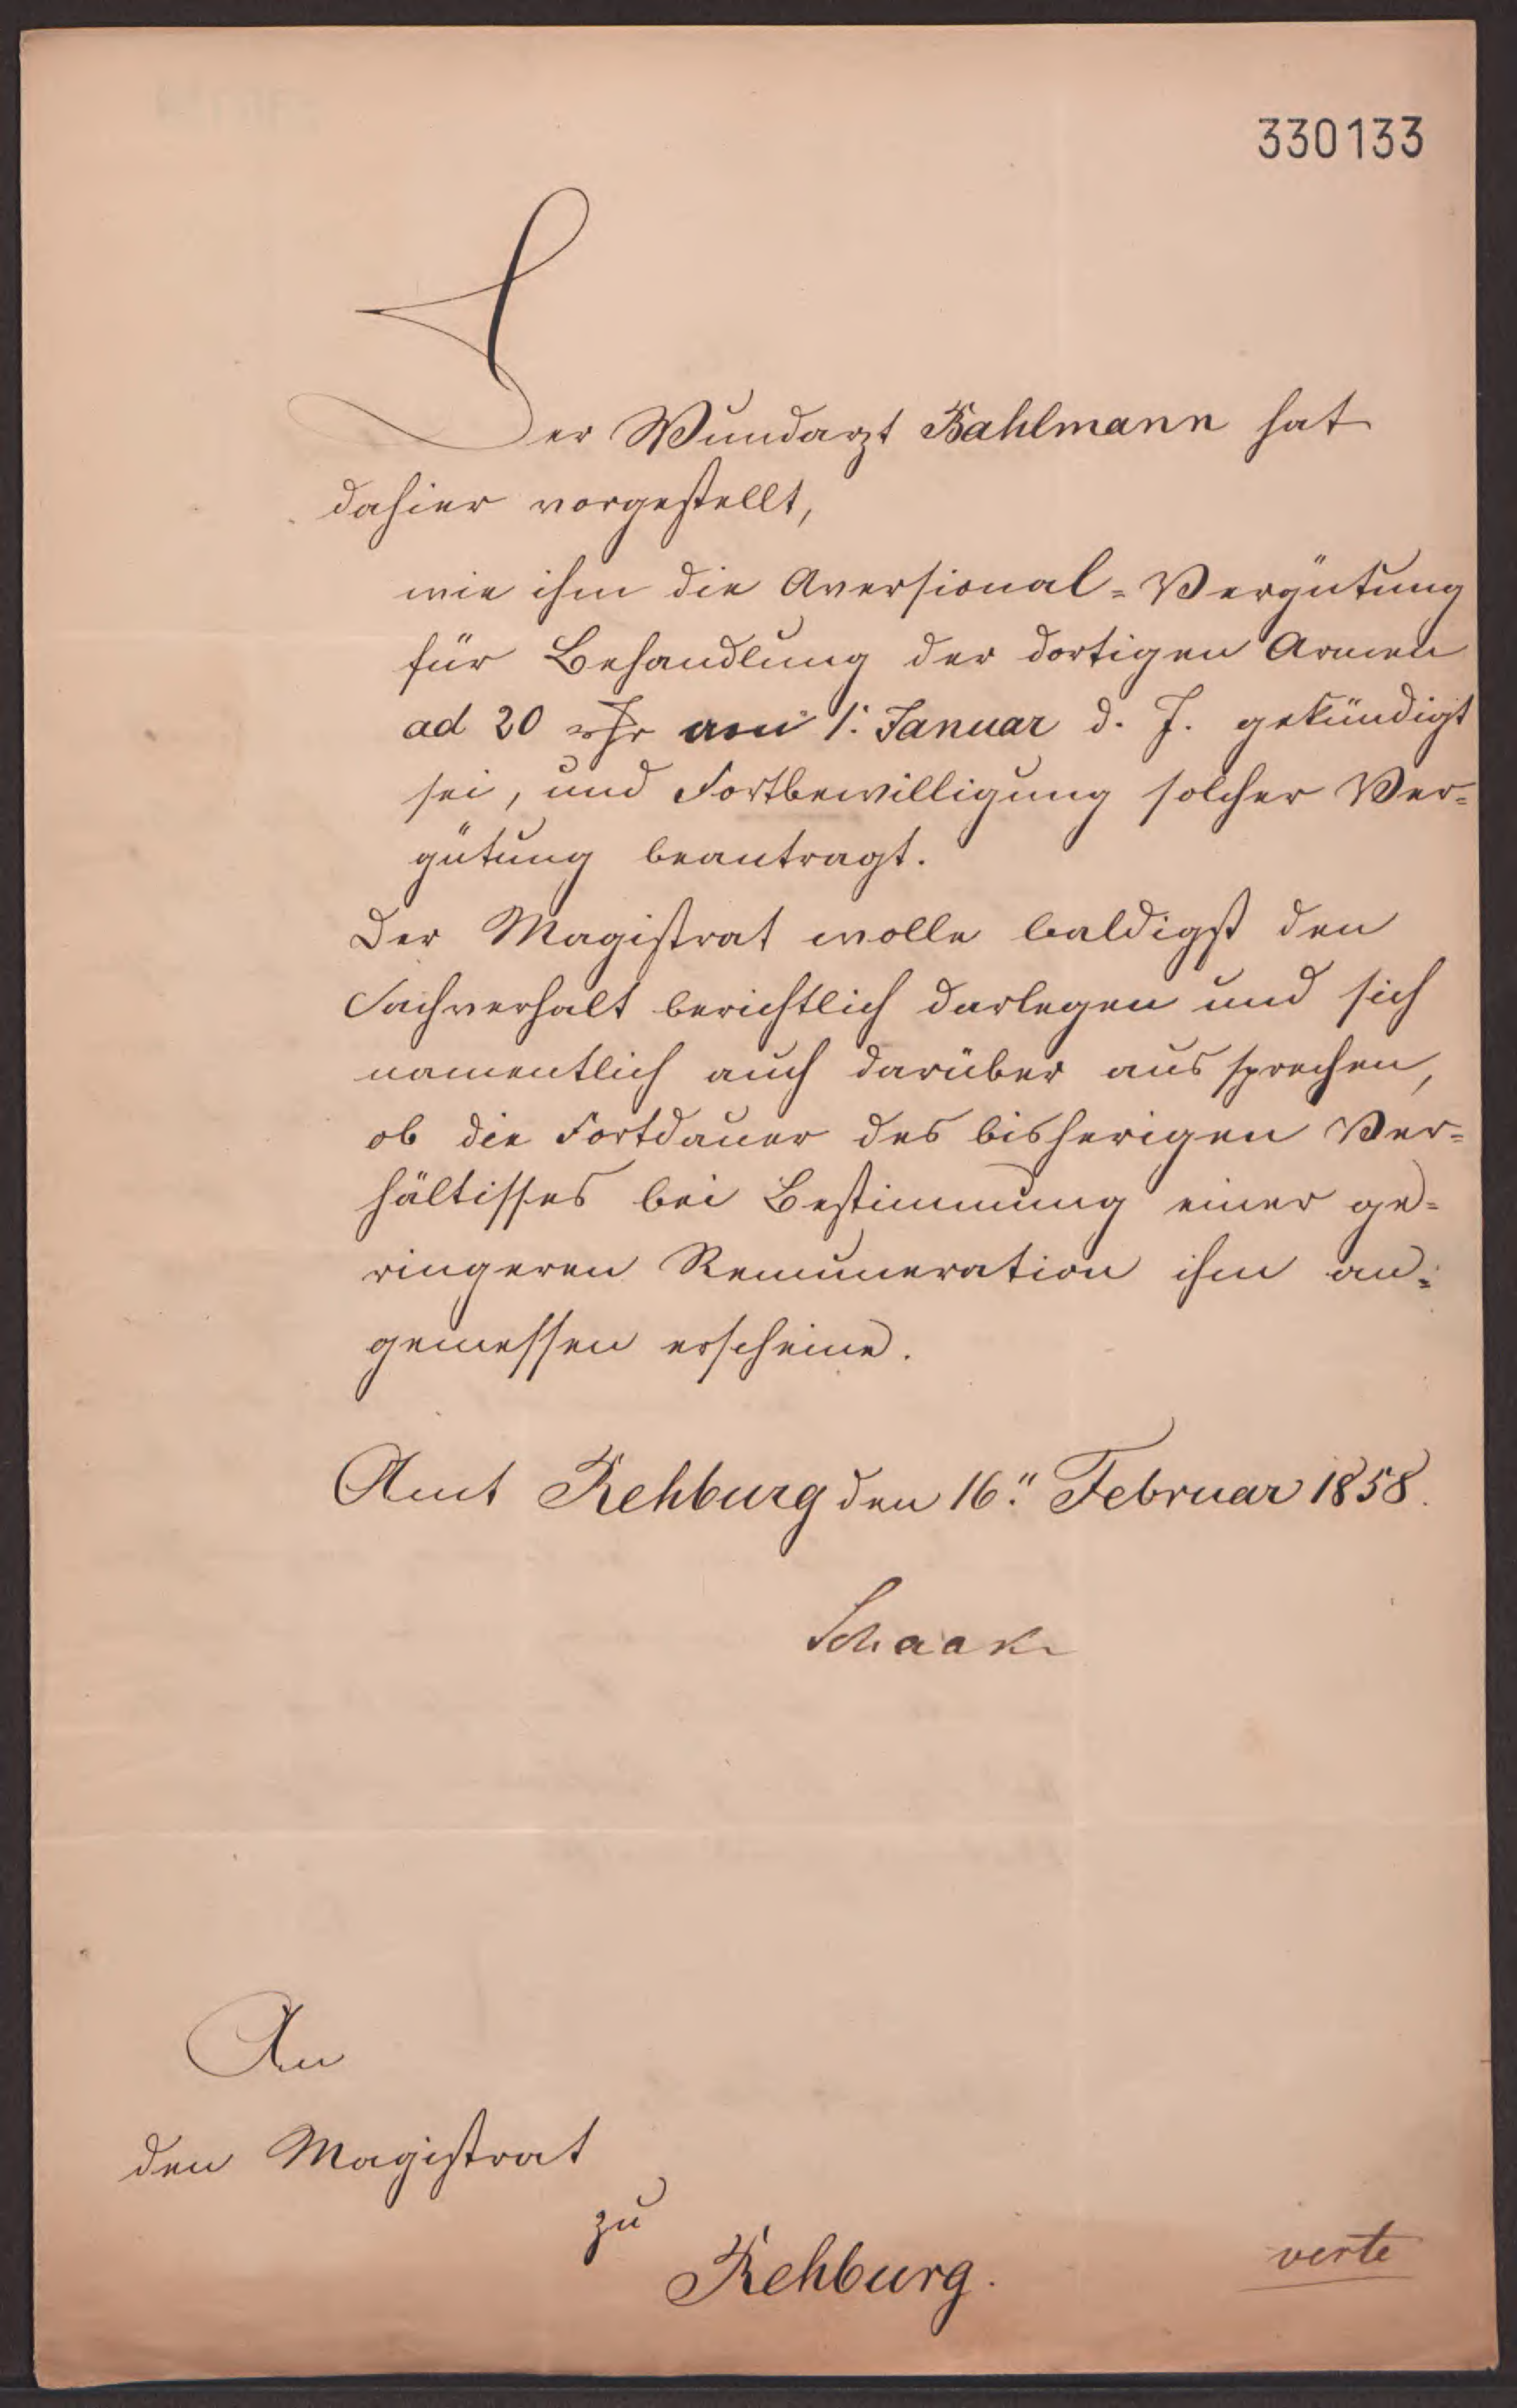 330133
Der Wundarzt Bahlmann hat
dahier vorgestellt,
wie ihm die Aversional=Vergütung
für Behandlung der dortigen Armen
ad 20 rthr am 1. Januar d. J. gekündigt
sei, und Fortbewilligung solcher Ver=
gütung beantragt.
Der Magistrat wolle baldigst den
Sachverhalt berichtlich darlegen und sich
namentlich auch darüber aussprechen,
ob die Fortdauer des bisherigen Ver=
hältisses bei Bestimmung einer ge=
ringeren Remuneration ihm an=
gemessen erscheine.
Amt Rehburg den 16. Februar 1858.
Schaak
An
den Magistrat
zu
Rehburg.
verte